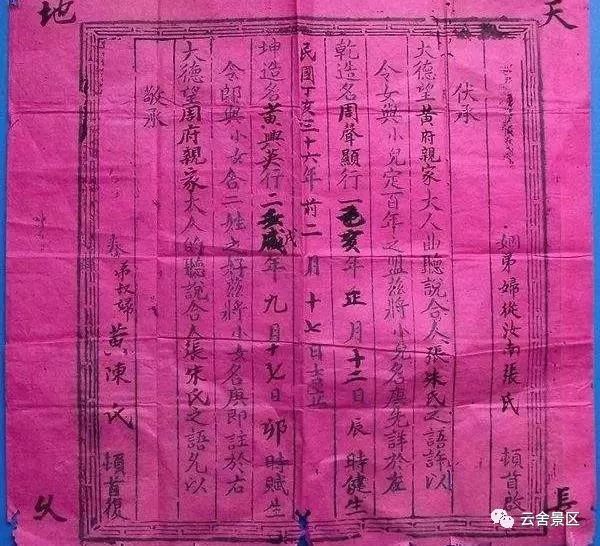 天
姻弟婦從汝南張氏 頓首啟
伏承
大德望黃府親家大人曲聽說合人張朱氏之語許以
令女與小兒定百年之盟茲將小兒名庚先詳於左
乾造名周聲顯行一亥年正月十二日辰時健生
民國丁亥三十六年前二月十七日
坤造名黃興英行二壬戌年九月十七日卯時賦生
戌
令郎與小女合二姓之好茲將小女名庚即註於右
大德望周府親家大人的聽說合人張朱氏之語允以
敬承
忝弟叔婦黃陳氏 頓首復
地
長
久
云舍景区